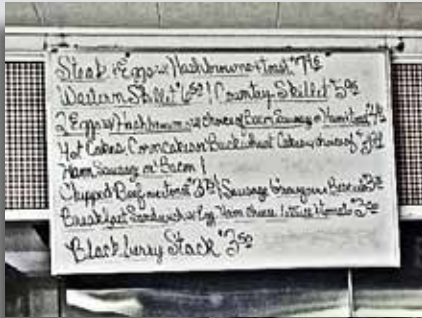 Steak & Eggs w/ Hashbrowns & toast
Western Skillet $6 50 / Country Skillet $5
2 Eggs w/ Hashbrowns w/ choice of Bacon Sausage or Ham toast
Hot Cakes, Corncakes or Buckwheat Cakes w/ choice of
Ham Sausage or Bacon
Chipped Beef on toast / Sausage Gravy over Biscuit
Breakfast Sandwich w/ Egg Ham cheese lettuce & tomato
Blackberry Stack $3 50